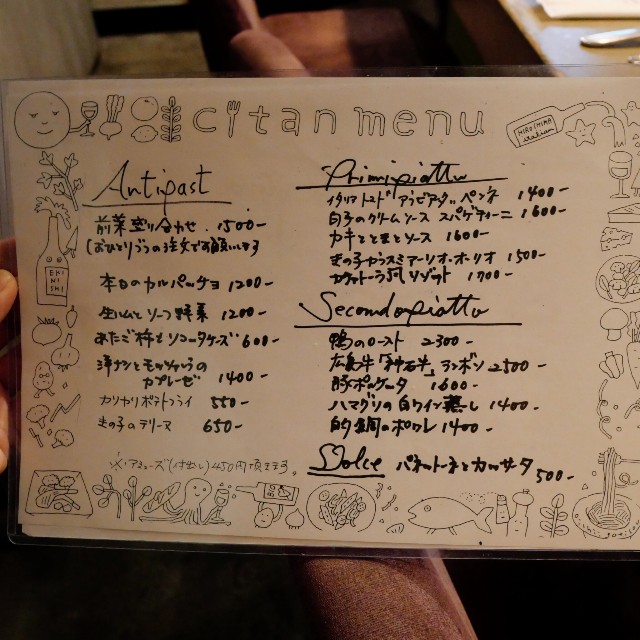 citan menu
HIROSHIMA station
EKI NISHI
Antipast
前菜盛り合わせ. 1500-
(おひとりづつの注文でお願いします
本日のカルパッチョ 1200-
生ハムとソーフ野菜 1200-
あたご柿とリコッタチーズ 600-
洋ナシとモッツァレラの
カプレーゼ 1400-
カリカリポテトフライ 550-
きの子のテリーヌ 650-
※アミューズ(付出し)450円頂きます。
Primipiatto
イタリアトマト アラビアータ ペンネ 1400-
白子のクリームソース スパゲティーニ 1600-
カキとトマトソース 1600-
きの子カラスミアーリオ・オーリオ 1500-
リゾット 1700-
Secondopiatto
鴨のロースト 2300-
広島牛「神石牛」ランボソ 2500-
豚ポルケータ 1600-
ハマグリの白ワイン蒸し 1400-
的鯛のポワレ 1400-
Dolce パネットーネとカッサータ 500-